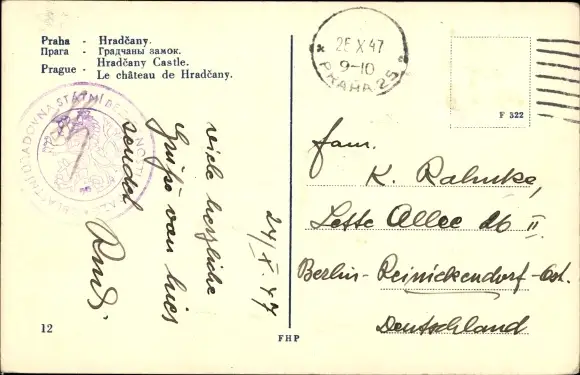 Praha - Hradčany.
Прага - Градчаны замок.
Prague - Hradčany Castle.
Le château de Hradčany.
26 X 47
9-10
PRAHA 25
F 322
STÁTNÍ
24/X. 47
viele herzliche
Grüße von hier
sendet
Fam.
K. Rahmke,
Lette Allee 26 II
Berlin-Reinickendorf-Ost.
Deutschland
12
FHP